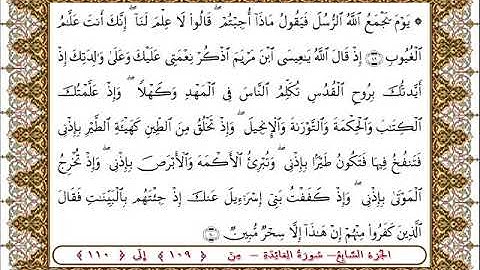 ۞ يَوْمَ يَجْمَعُ ٱللَّهُ ٱلرُّسُلَ فَيَقُولُ مَاذَآ أُجِبْتُمْ ۖ قَالُوا۟ لَا عِلْمَ لَنَآ ۖ إِنَّكَ أَنتَ عَلَّٰمُ
ٱلْغُيُوبِ ﴿١٠٩﴾ إِذْ قَالَ ٱللَّهُ يَٰعِيسَى ٱبْنَ مَرْيَمَ ٱذْكُرْ نِعْمَتِى عَلَيْكَ وَعَلَىٰ وَٰلِدَتِكَ إِذْ
أَيَّدتُّكَ بِرُوحِ ٱلْقُدُسِ تُكَلِّمُ ٱلنَّاسَ فِى ٱلْمَهْدِ وَكَهْلًا ۖ وَإِذْ عَلَّمْتُكَ
ٱلْكِتَٰبَ وَٱلْحِكْمَةَ وَٱلتَّوْرَىٰةَ وَٱلْإِنجِيلَ ۖ وَإِذْ تَخْلُقُ مِنَ ٱلطِّينِ كَهَيْـَٔةِ ٱلطَّيْرِ بِإِذْنِى
فَتَنفُخُ فِيهَا فَتَكُونُ طَيْرًۢا بِإِذْنِى ۖ وَتُبْرِئُ ٱلْأَكْمَهَ وَٱلْأَبْرَصَ بِإِذْنِى ۖ وَإِذْ تُخْرِجُ
ٱلْمَوْتَىٰ بِإِذْنِى ۖ وَإِذْ كَفَفْتُ بَنِىٓ إِسْرَٰٓءِيلَ عَنكَ إِذْ جِئْتَهُم بِٱلْبَيِّنَٰتِ فَقَالَ
ٱلَّذِينَ كَفَرُوا۟ مِنْهُمْ إِنْ هَٰذَآ إِلَّا سِحْرٌ مُّبِينٌ ﴿١١٠﴾
الجزء السابع - سورة المائدة - من ﴿ ١٠٩ ﴾ إلى ﴿ ١١٠ ﴾